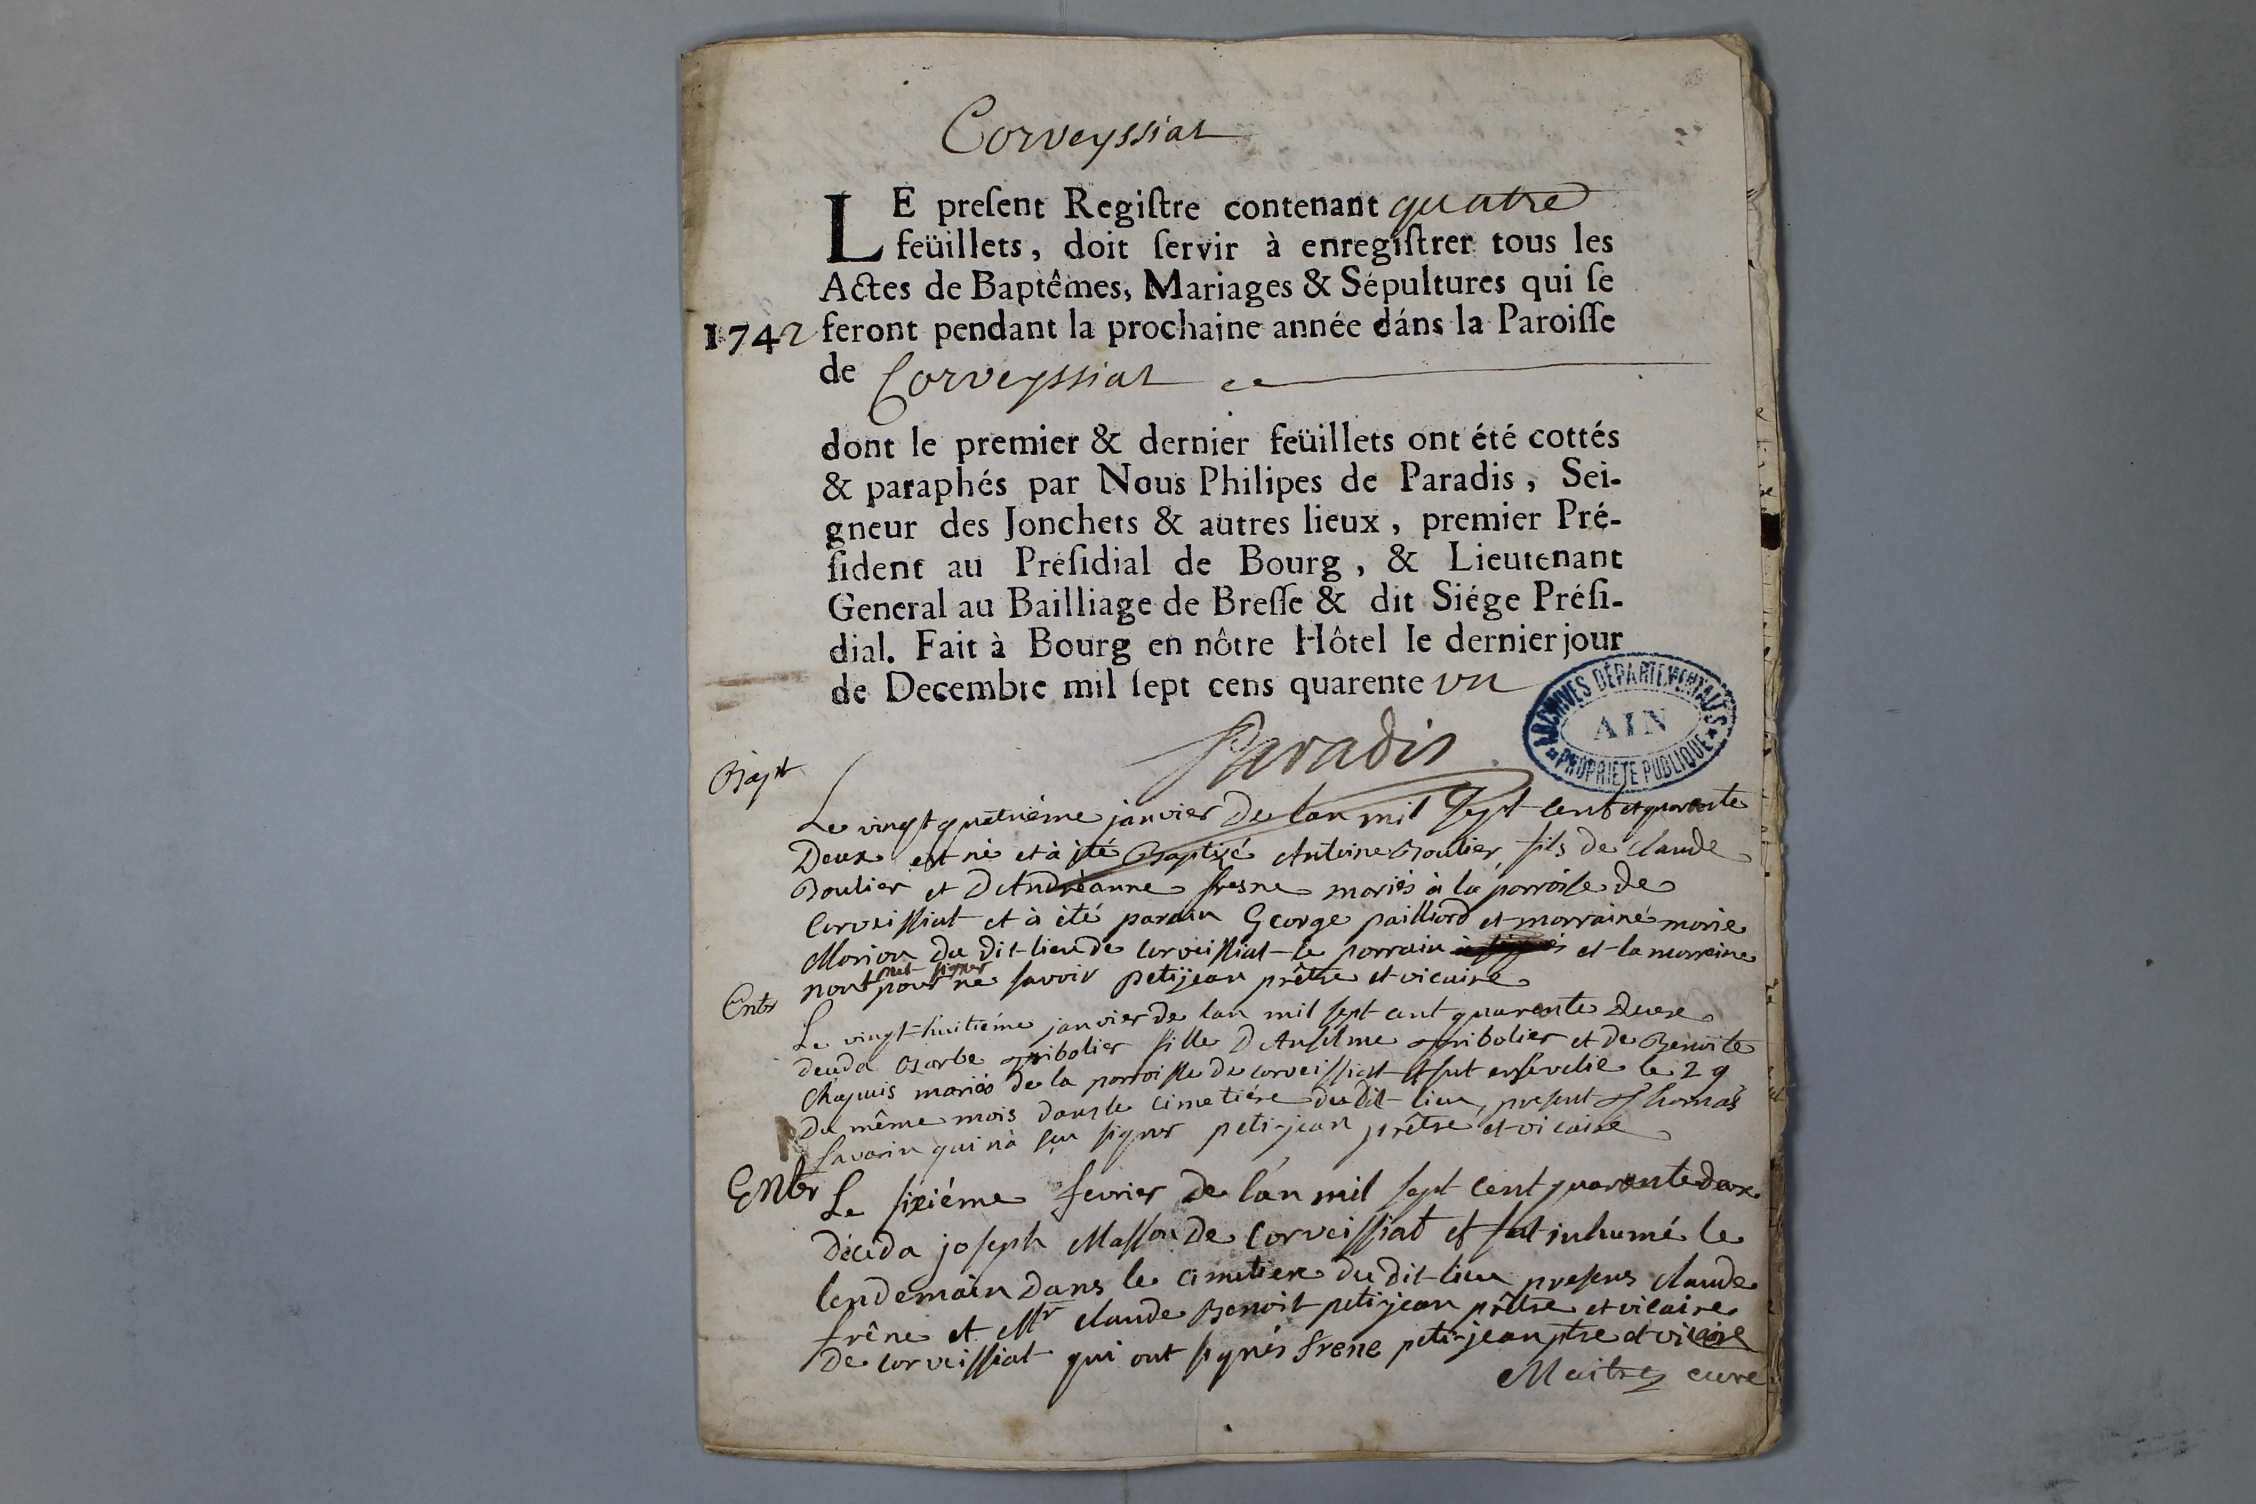 Corveyssiat
LE preſent Regiſtre contenant quatre
feüillets, doit ſervir à enregiſtrer tous les
Actes de Baptêmes, Mariages & Sépultures qui ſe
1742 feront pendant la prochaine année dáns la Paroiſſe
de Corveyssiat
dont le premier & dernier feüillets ont été cottés
& paraphés par Nous Philipes de Paradis, Sei-
gneur des Jonchets & autres lieux, premier Pré-
ſident au Préſidial de Bourg, & Lieutenant
General au Bailliage de Breſſe & dit Siége Préſi-
dial. Fait à Bourg en nôtre Hôtel le dernier jour
de Decembre mil ſept cens quarente un
ARCHIVES DÉPARTEMENTALES
AIN
PROPRIETE PUBLIQUE
Paradis
Bapt
Le vingt quatrième janvier de lan mil sept cent et quarente
Deux est né et à été Baptizé Antoine Boulier fils de claude
Boulier et D'Andréanne fresne mariés à la parroisse de
Corveissiat et à été parain George pailliard et marraine marie
Morion du dit-lieu de Corveissiat le parrain et la marraine
nont pour ne savoir petijean prêtre et vicaire
Entr
Le vingt-huitiéme janvier de lan mil sept cent quarente deux
deceda Barbe fille D'Anselme et de Benoite
Chapuis mariés de la parroisse de corveissiat et fut ensevelie le 29
Du même mois dans le cimetiére du dit-lieu, présent Thomas
Savarin qui nà sçu signer peti-jean prêtre et vicaire
Entr Le sixiéme fevrier de l'an mil sept cent quarente deux
Déceda joseph Masson de Corveissiat et fut inhumé le
lendemain dans le cimetiere du dit-lieu presens claude
frêne et Mr claude Benoit petitjean prêtre et vicaire
de corveissiat qui ont signés frene peti-jean ptre et vicaire
Maitre curé